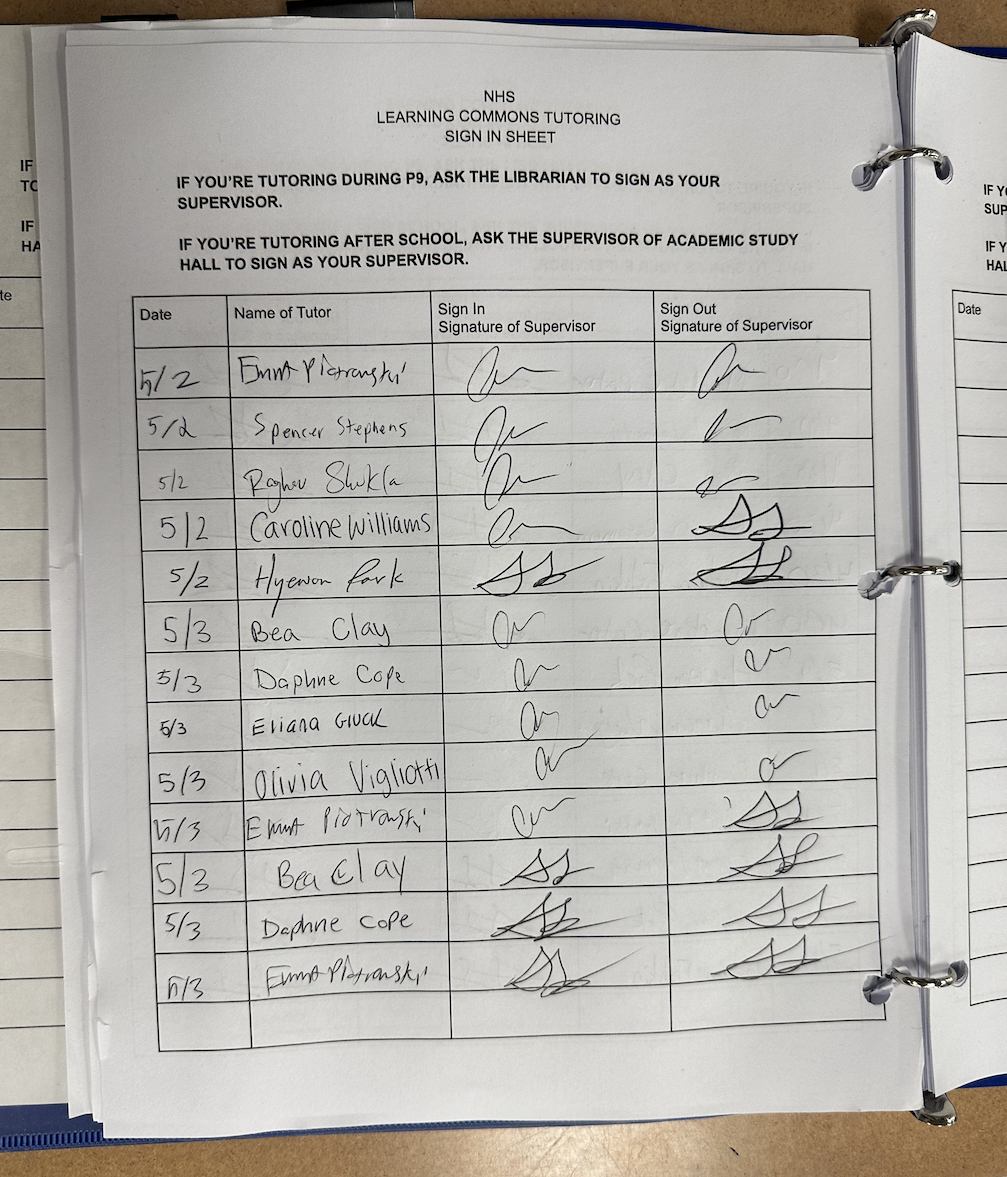 NHS
LEARNING COMMONS TUTORING
SIGN IN SHEET
IF YOU'RE TUTORING DURING P9, ASK THE LIBRARIAN TO SIGN AS YOUR
SUPERVISOR.
IF YOU'RE TUTORING AFTER SCHOOL, ASK THE SUPERVISOR OF ACADEMIC STUDY
HALL TO SIGN AS YOUR SUPERVISOR.
Date Name of Tutor Sign In Sign Out
Signature of Supervisor Signature of Supervisor
5/2
5/2 Spencer Stephens
5/2 Raghav Shukla
5/2 Caroline Williams
5/2 Hyewon Park
5/3 Bea Clay
5/3 Daphne Cope
5/3 Eliana Gluck
5/3 Olivia Vigliotti
5/3
5/3 Bea Clay
5/3 Daphne Cope
5/3
IF
TO
IF
HA
te
IF Y
SUP
IF Y
HAL
Date